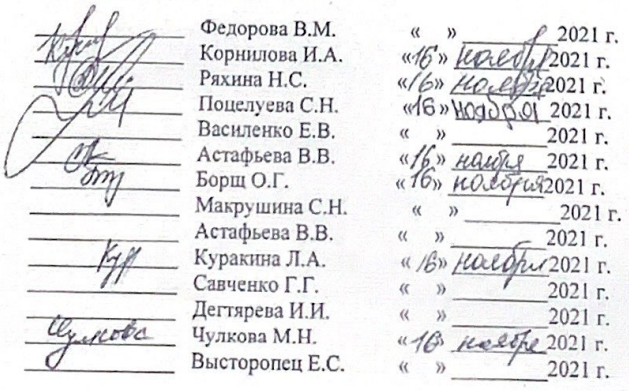 Федорова В.М. « » 2021 г.
Корнилова И.А. «16» ноября 2021 г.
Ряхина Н.С. «16» ноября 2021 г.
Поцелуева С.Н. «16» ноября 2021 г.
Василенко Е.В. « » 2021 г.
Астафьева В.В. «16» ноября 2021 г.
Борщ О.Г. «16» ноября 2021 г.
Макрушина С.Н. « » 2021 г.
Астафьева В.В. « » 2021 г.
Куракина Л.А. «16» ноября 2021 г.
Савченко Г.Г. « » 2021 г.
Дегтярева И.И. « » 2021 г.
Чулкова М.Н. «16» ноября 2021 г.
Высторопец Е.С. « » 2021 г.